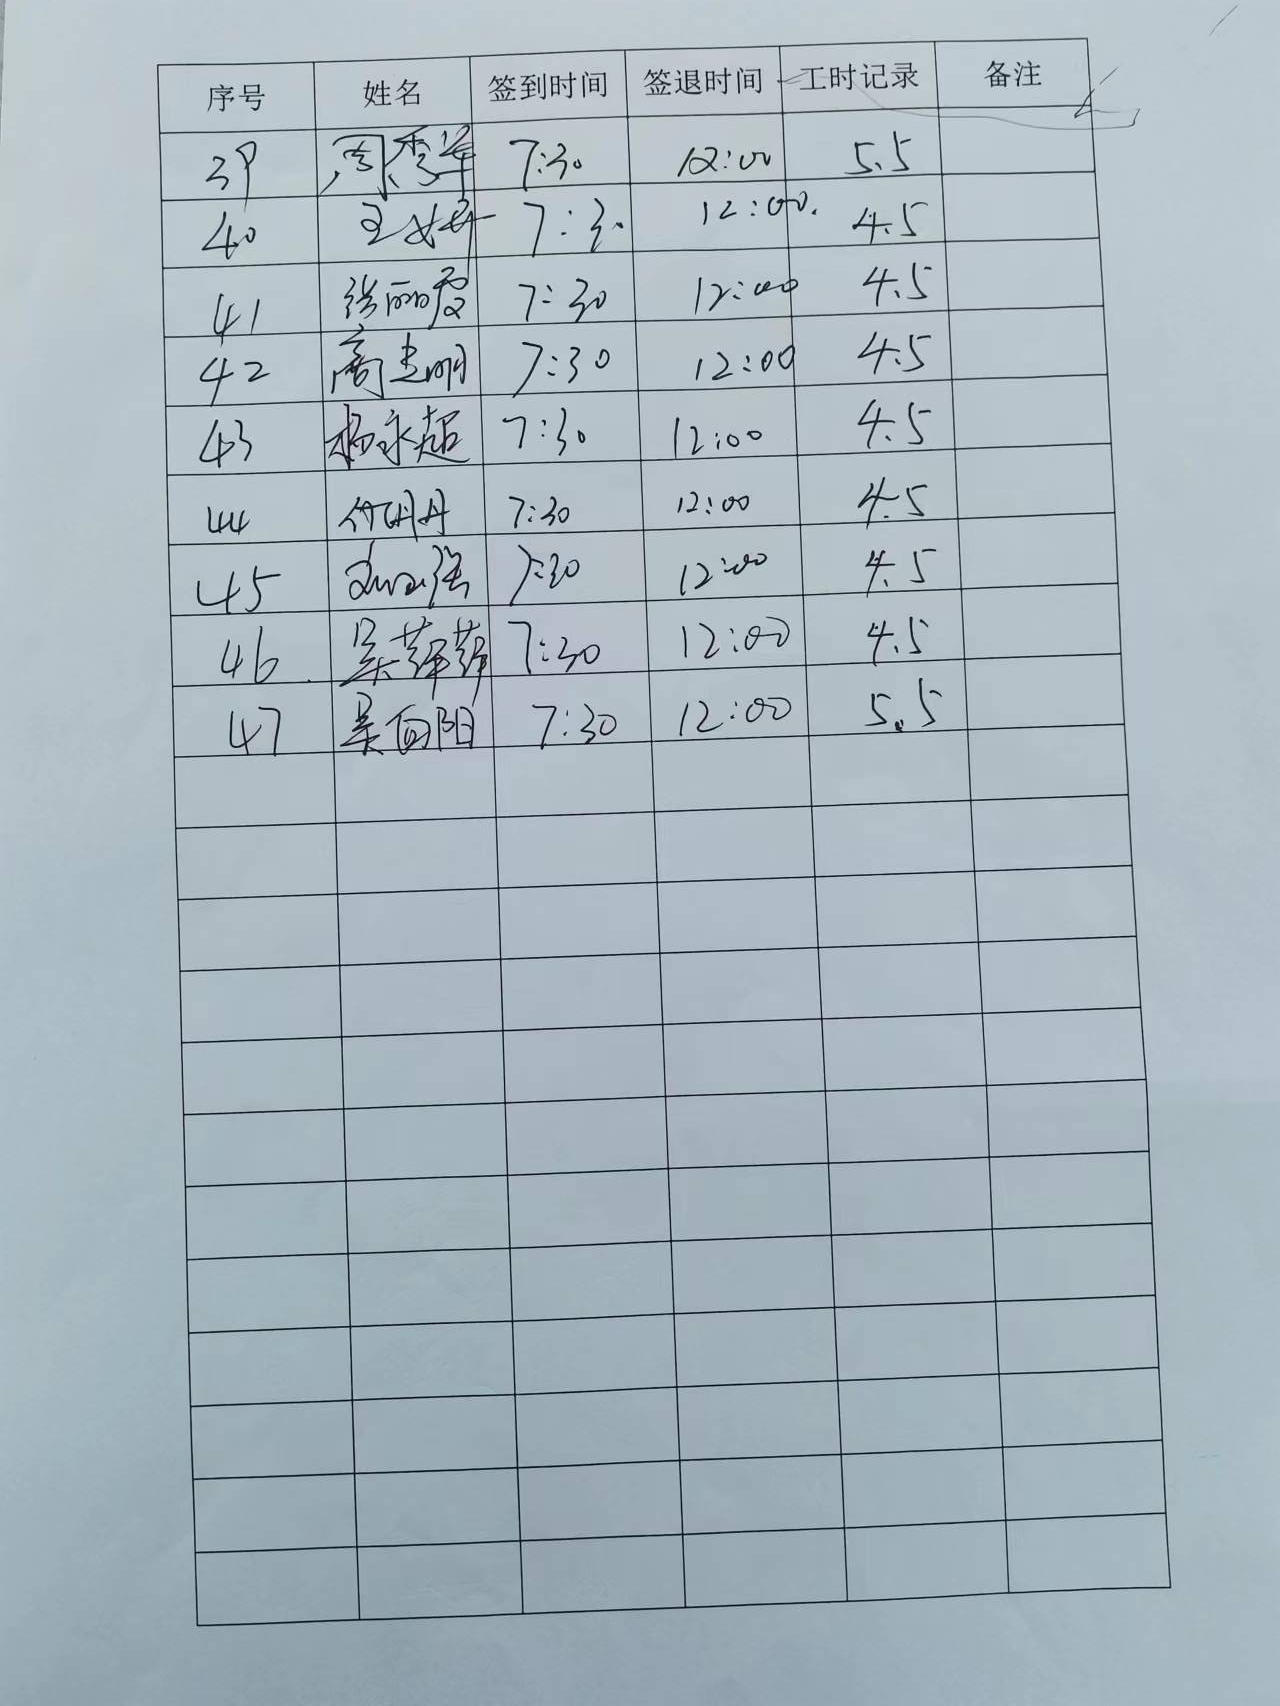 序号 姓名 签到时间 签退时间 工时记录 备注
39 周秀华 7:30 12:00 5.5
40 王 7:30 12:00. 4.5
41 张丽霞 7:30 12:00 4.5
42 7:30 12:00 4.5
43 杨永超 7:30 12:00 4.5
44 7:30 12:00 4.5
45 7:30 12:00 4.5
46 吴萍萍 7:30 12:00 4.5
47 吴向阳 7:30 12:00 5.5